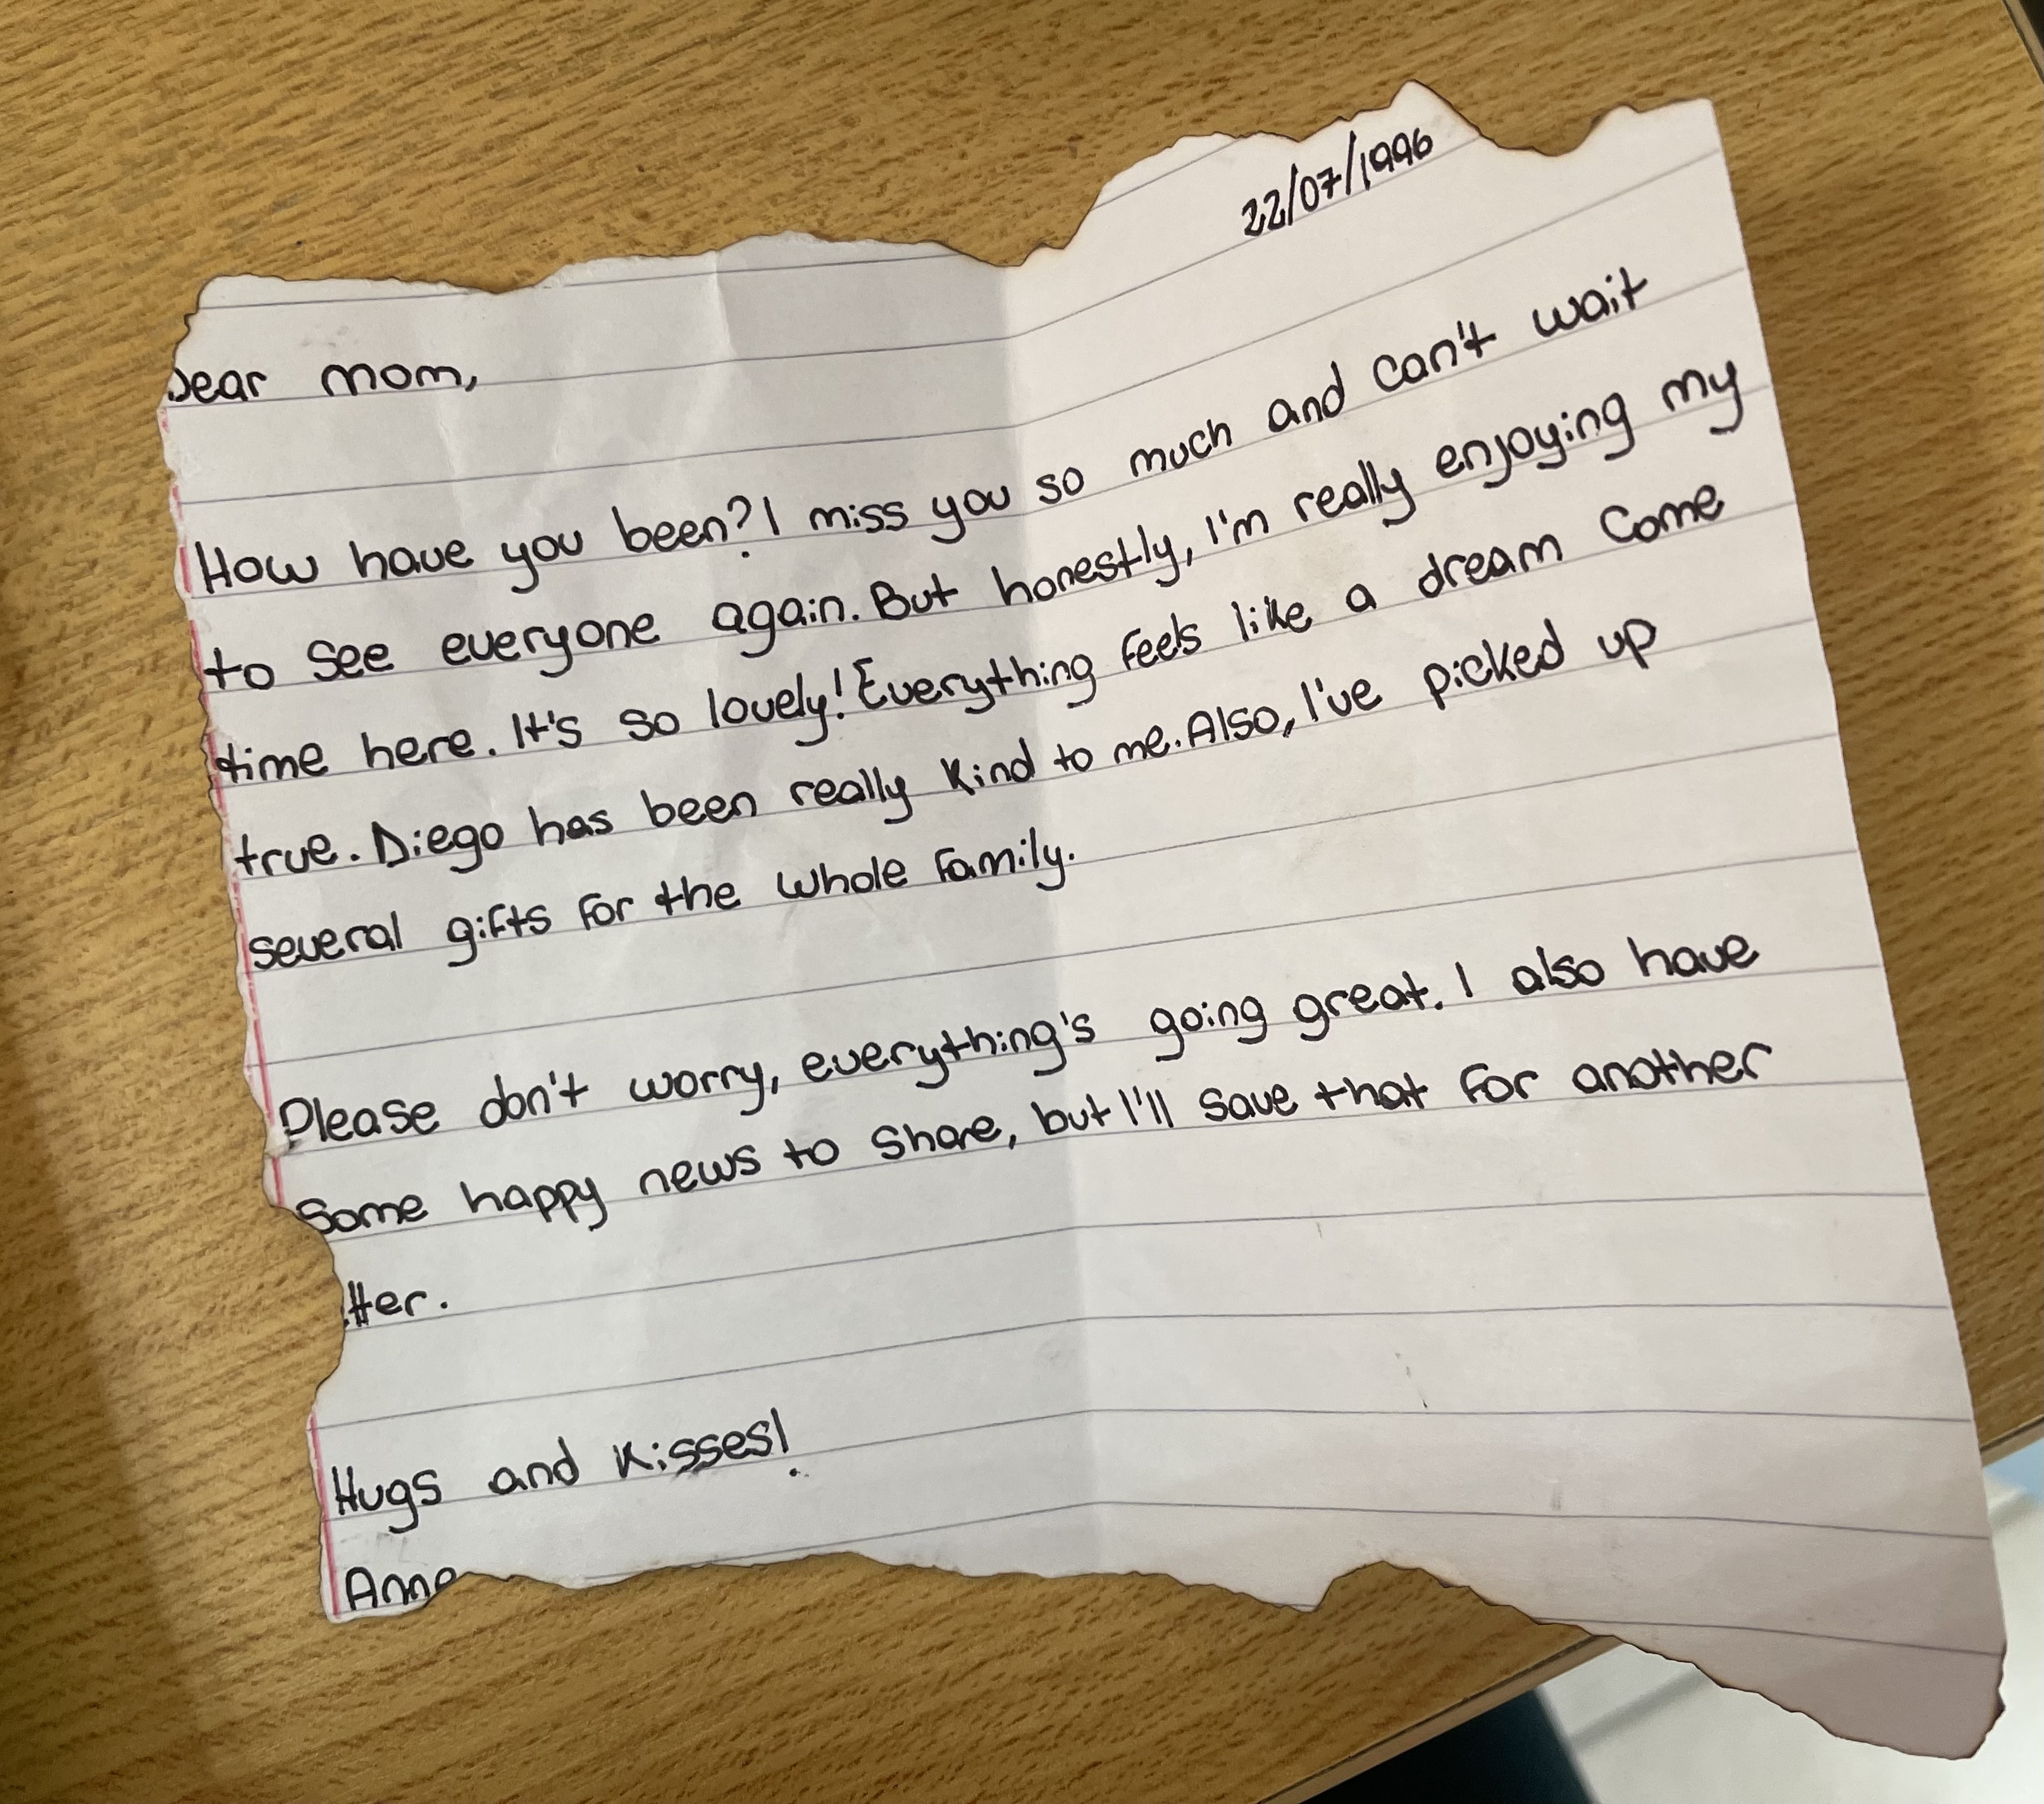 22/07/1996
Dear mom,
How have you been? I miss you so much and can't wait
to see everyone again. But honestly, I'm really enjoying my
time here. It's so lovely! Everything feels like a dream come
true. Diego has been really kind to me. Also, I've picked up
several gifts for the whole family.
Please don't worry, everything's going great. I also have
some happy news to share, but I'll save that for another
tter.
Hugs and kisses!